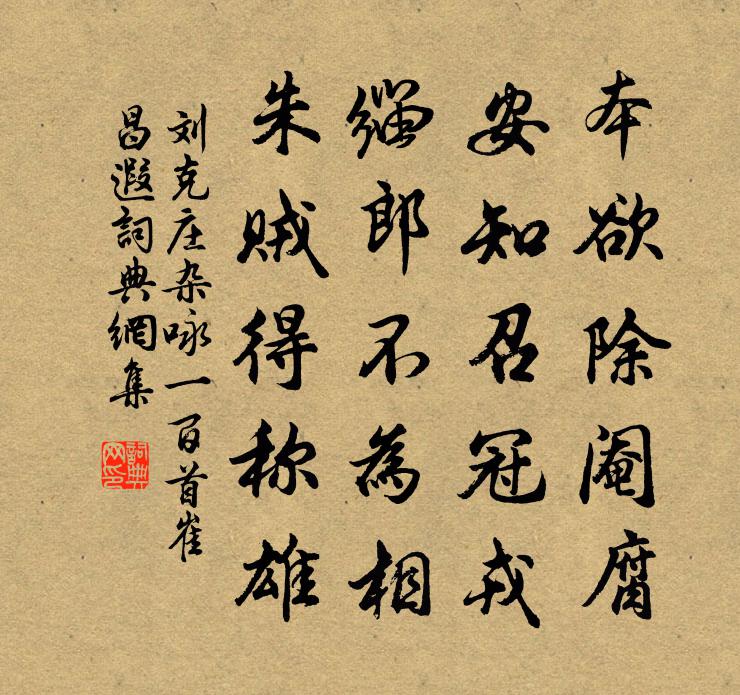 本欲除阉腐
安知召冠戎
缁郎不為相
朱贼得称雄
刘克庄杂咏一百首崔
昌遐詞典網集
詞典网印